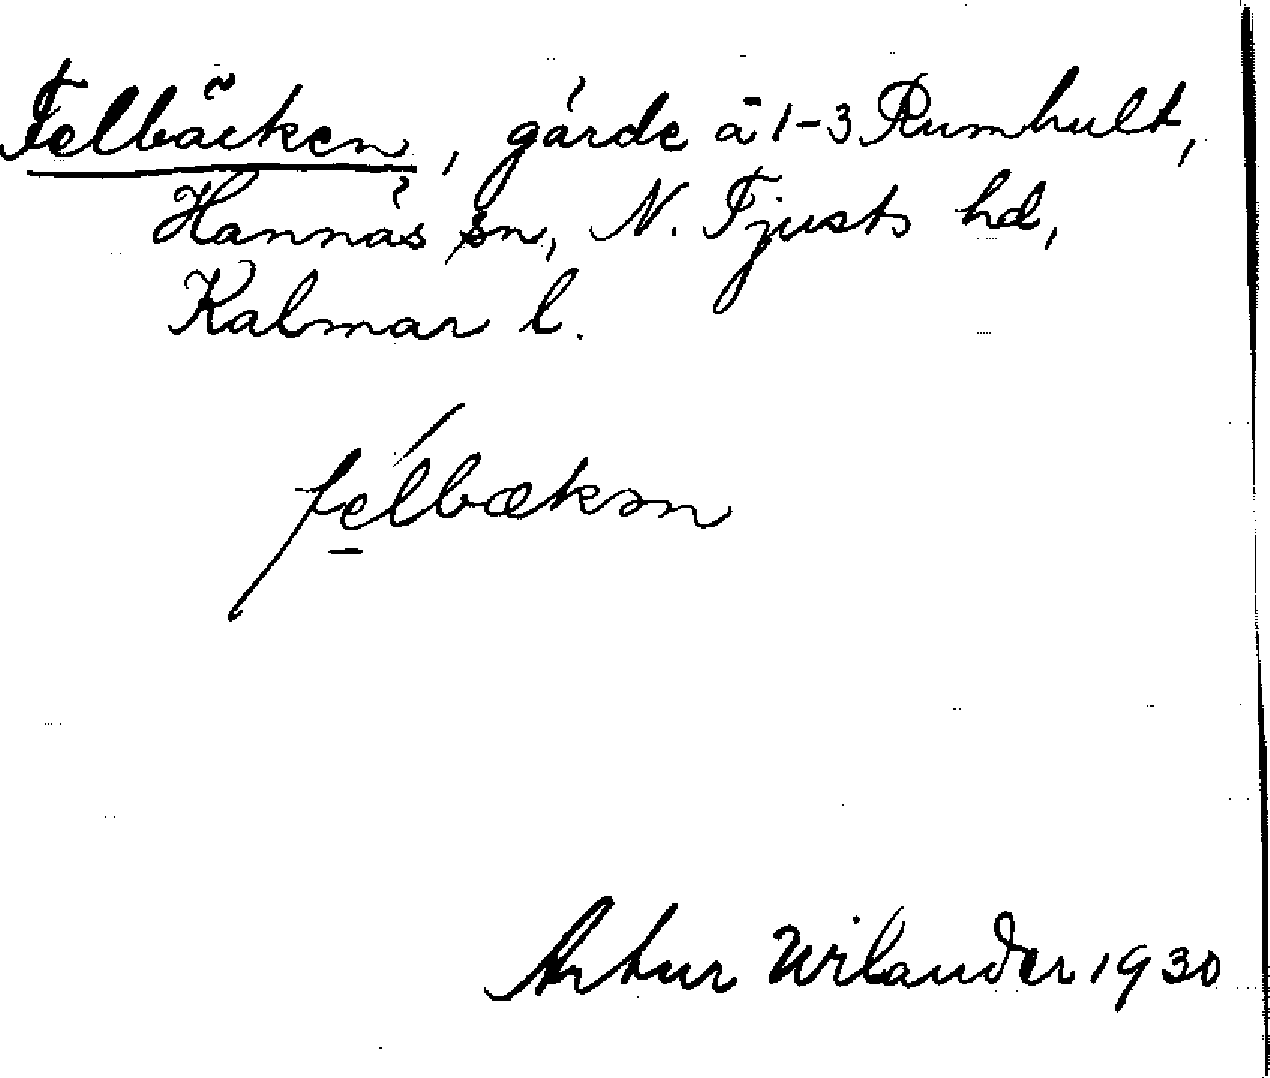 Felbäcken, gärde å 1-3 Rumhult,
Hannäs sn, N. Tjusts hd,
Kalmar l.
fe̲lbækən
Artur Wilander 1930